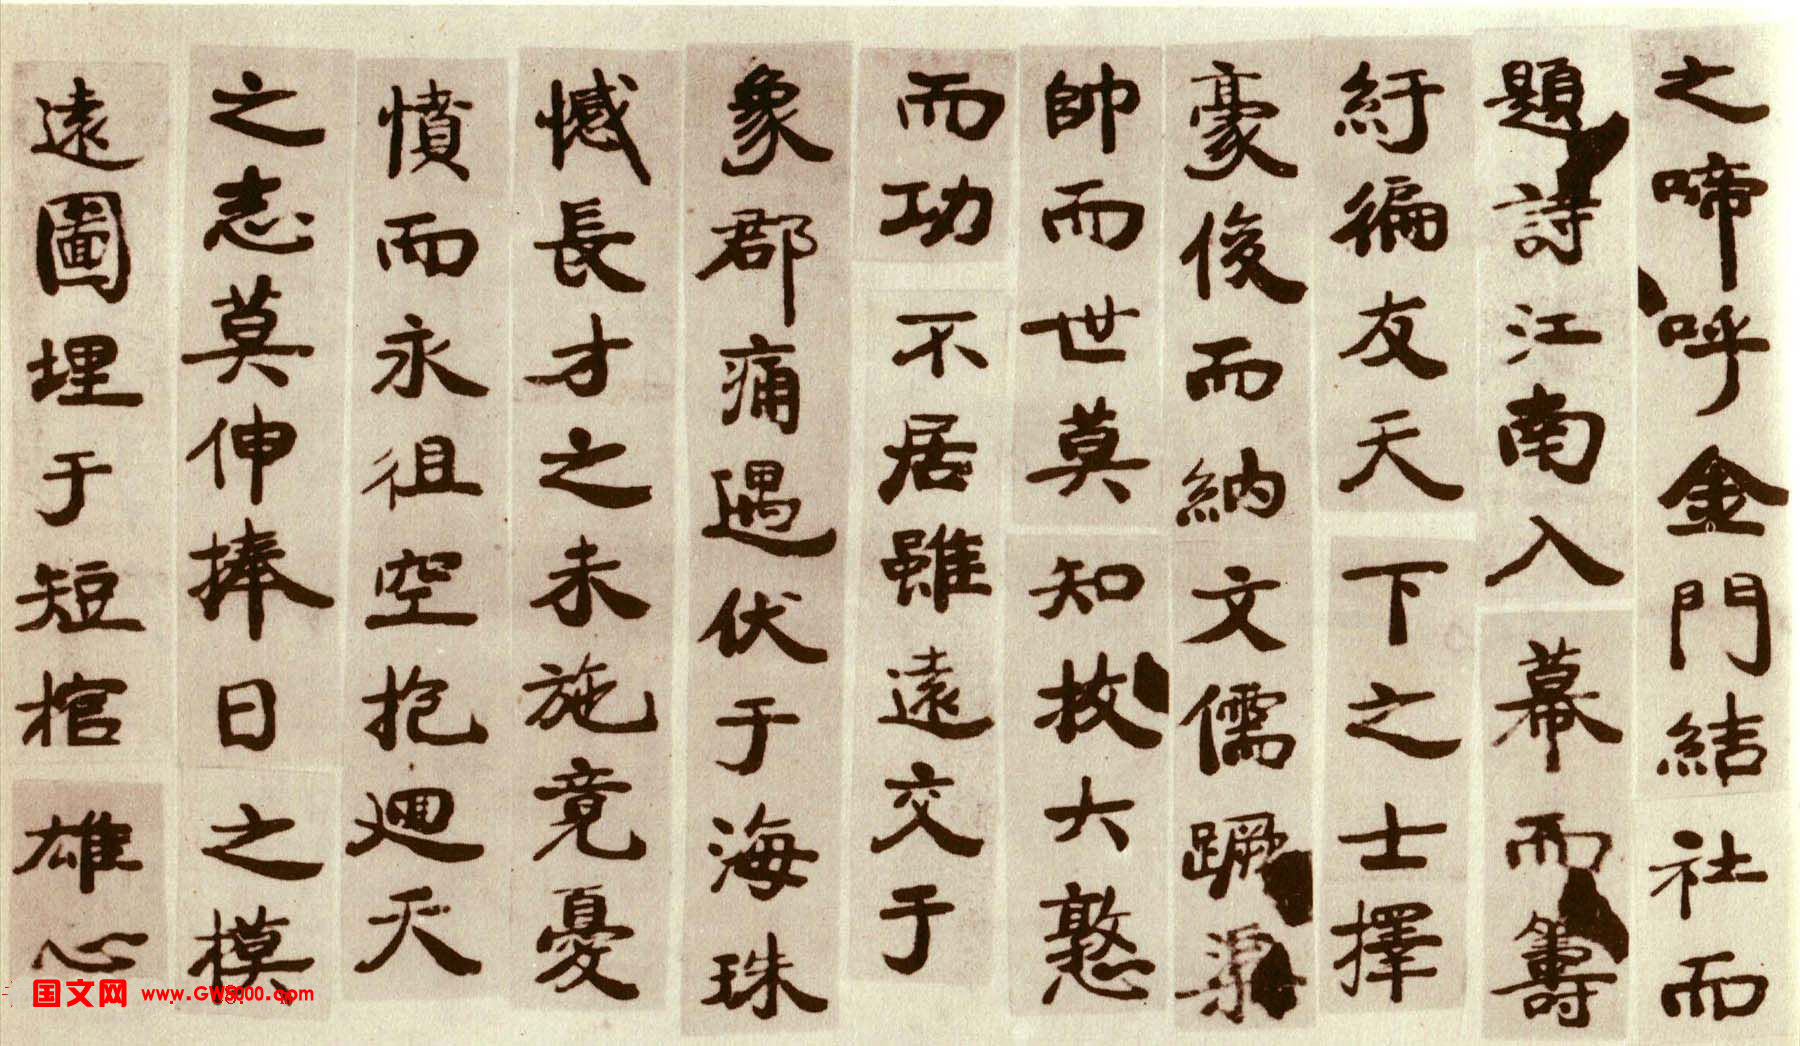 之啼呼金門結社而
題詩江南入幕而籌
紆徧友天下之士擇
豪俊而納文儒蹶渠
帥而世莫知扙大憝
而功不居雖遠交于
象郡痛遇伏于海珠
憾長才之未施竟憂
憤而永徂空抱迴天
之志莫伸捧日之模
遠圖埋于短棺雄心
国文网 www.GW5000.com